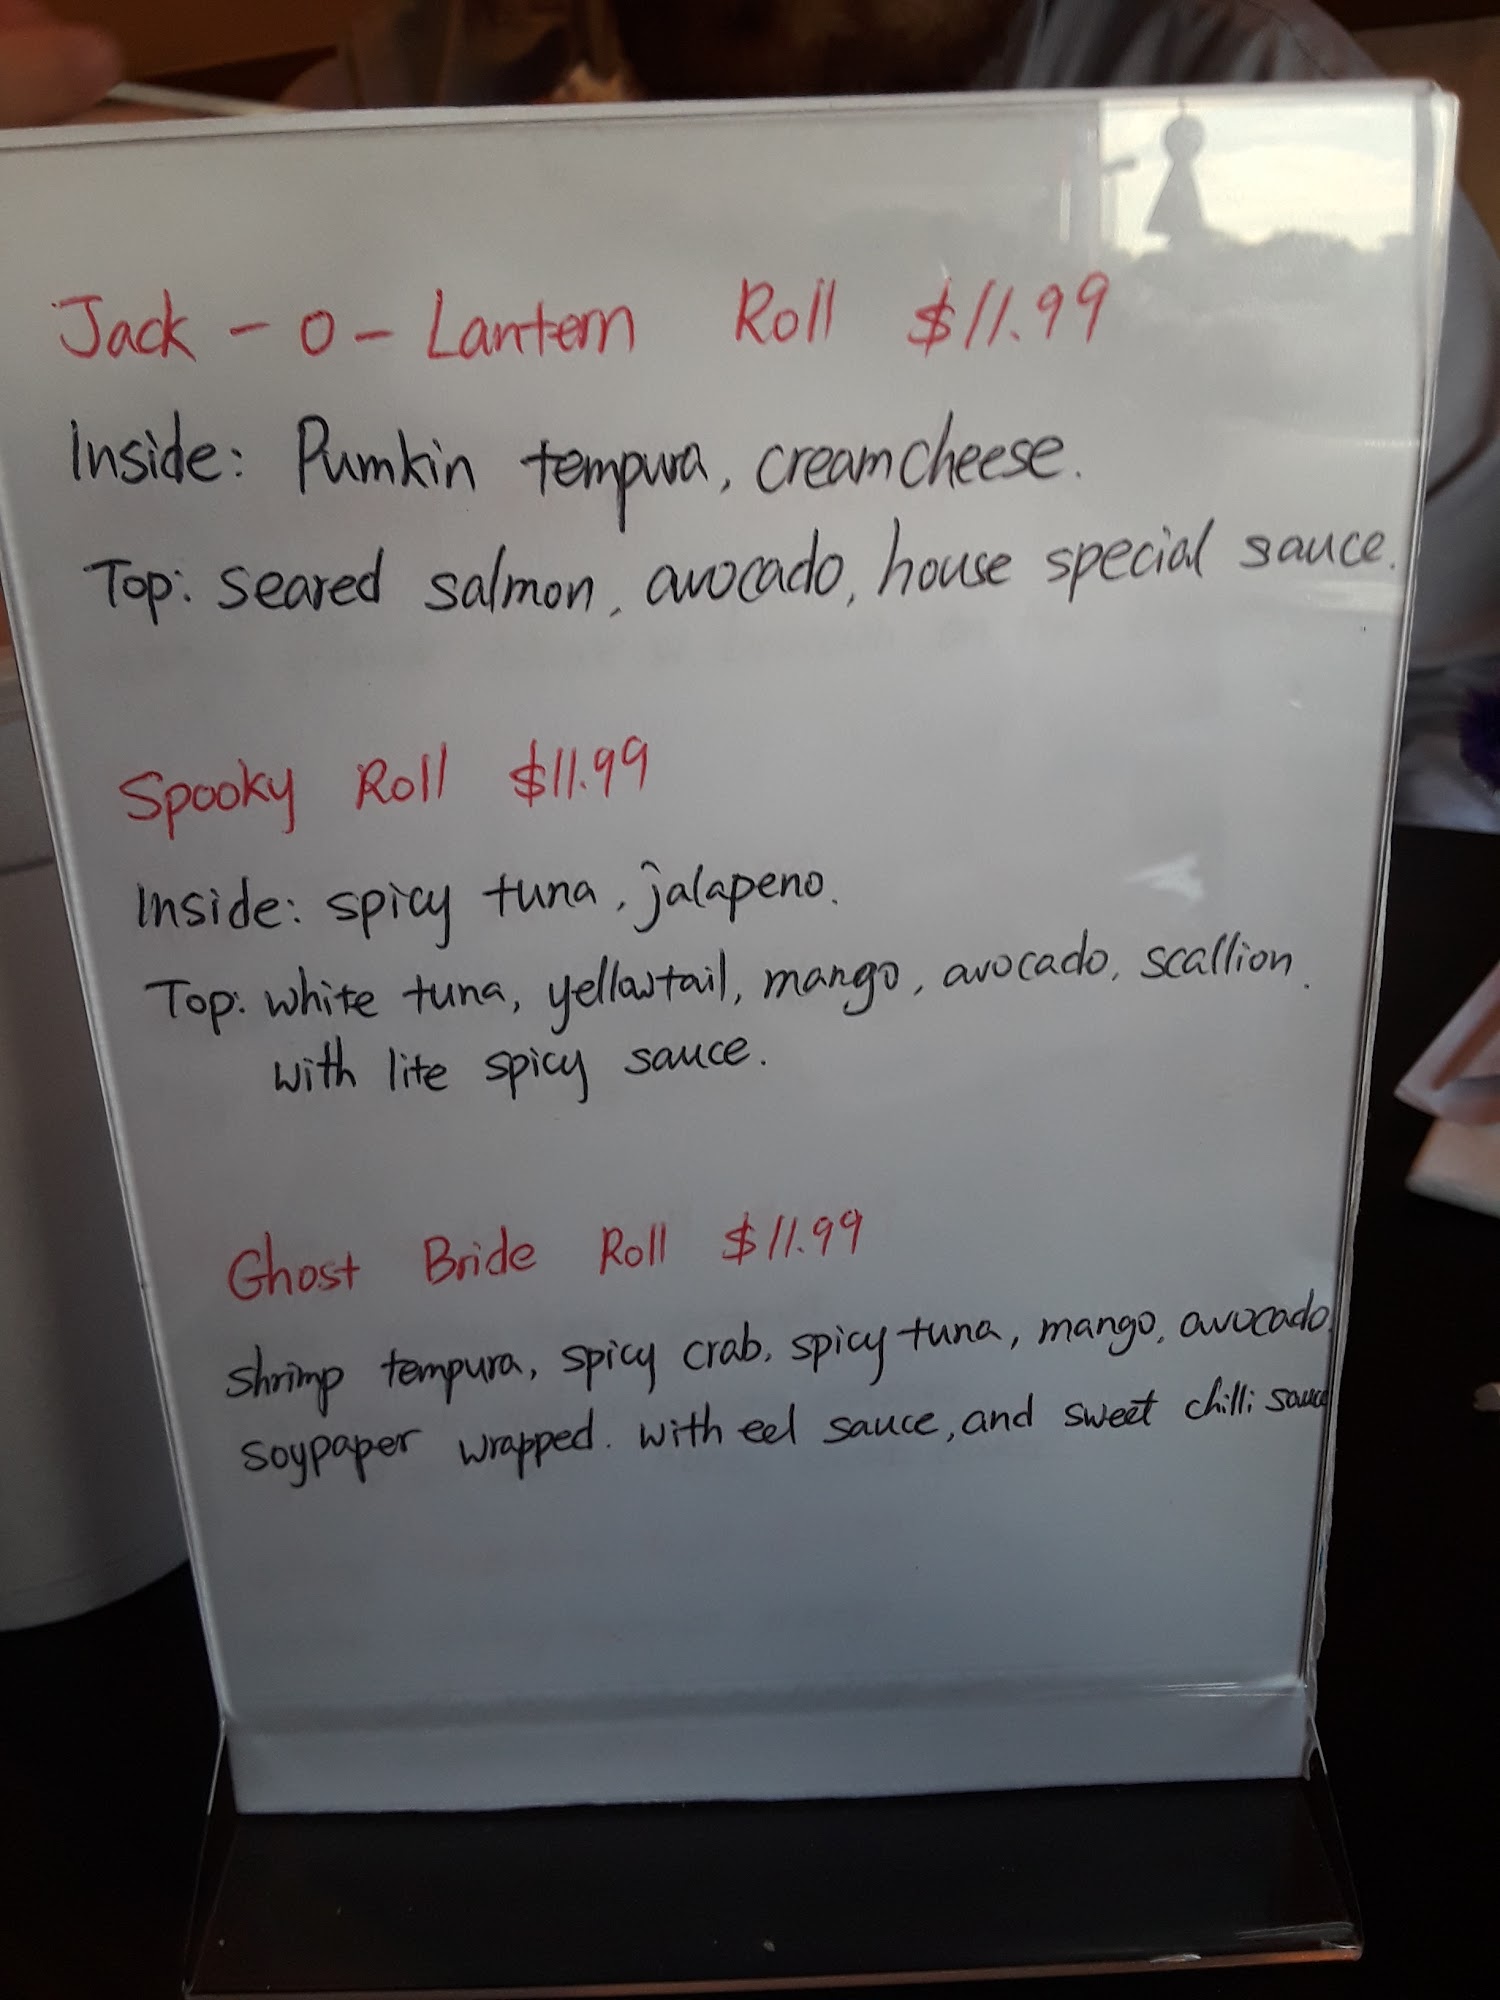 Jack - o - Lantern Roll $11.99
Inside: Pumkin tempura, creamcheese.
Top: seared salmon, avocado, house special sauce.
Spooky Roll $11.99
Inside: spicy tuna, jalapeno.
Top: white tuna, yellowtail, mango, avocado, scallion.
with lite spicy sauce.
Ghost Bride Roll $11.99
shrimp tempura, spicy crab, spicy tuna, mango, avocado,
soypaper wrapped. with eel sauce, and sweet chilli sauce